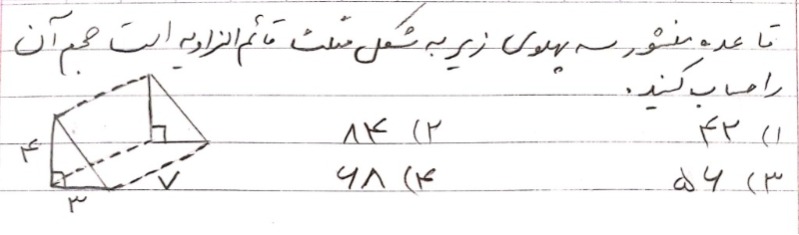 قاعده منشور سه پهلوی زیر به شکل مثلث قائم الزاویه است حجم آن
را حساب کنید.
۱) ۴۲ ۲) ۸۴
۳) ۵۶ ۴) ۶۸
۴
۷
۳